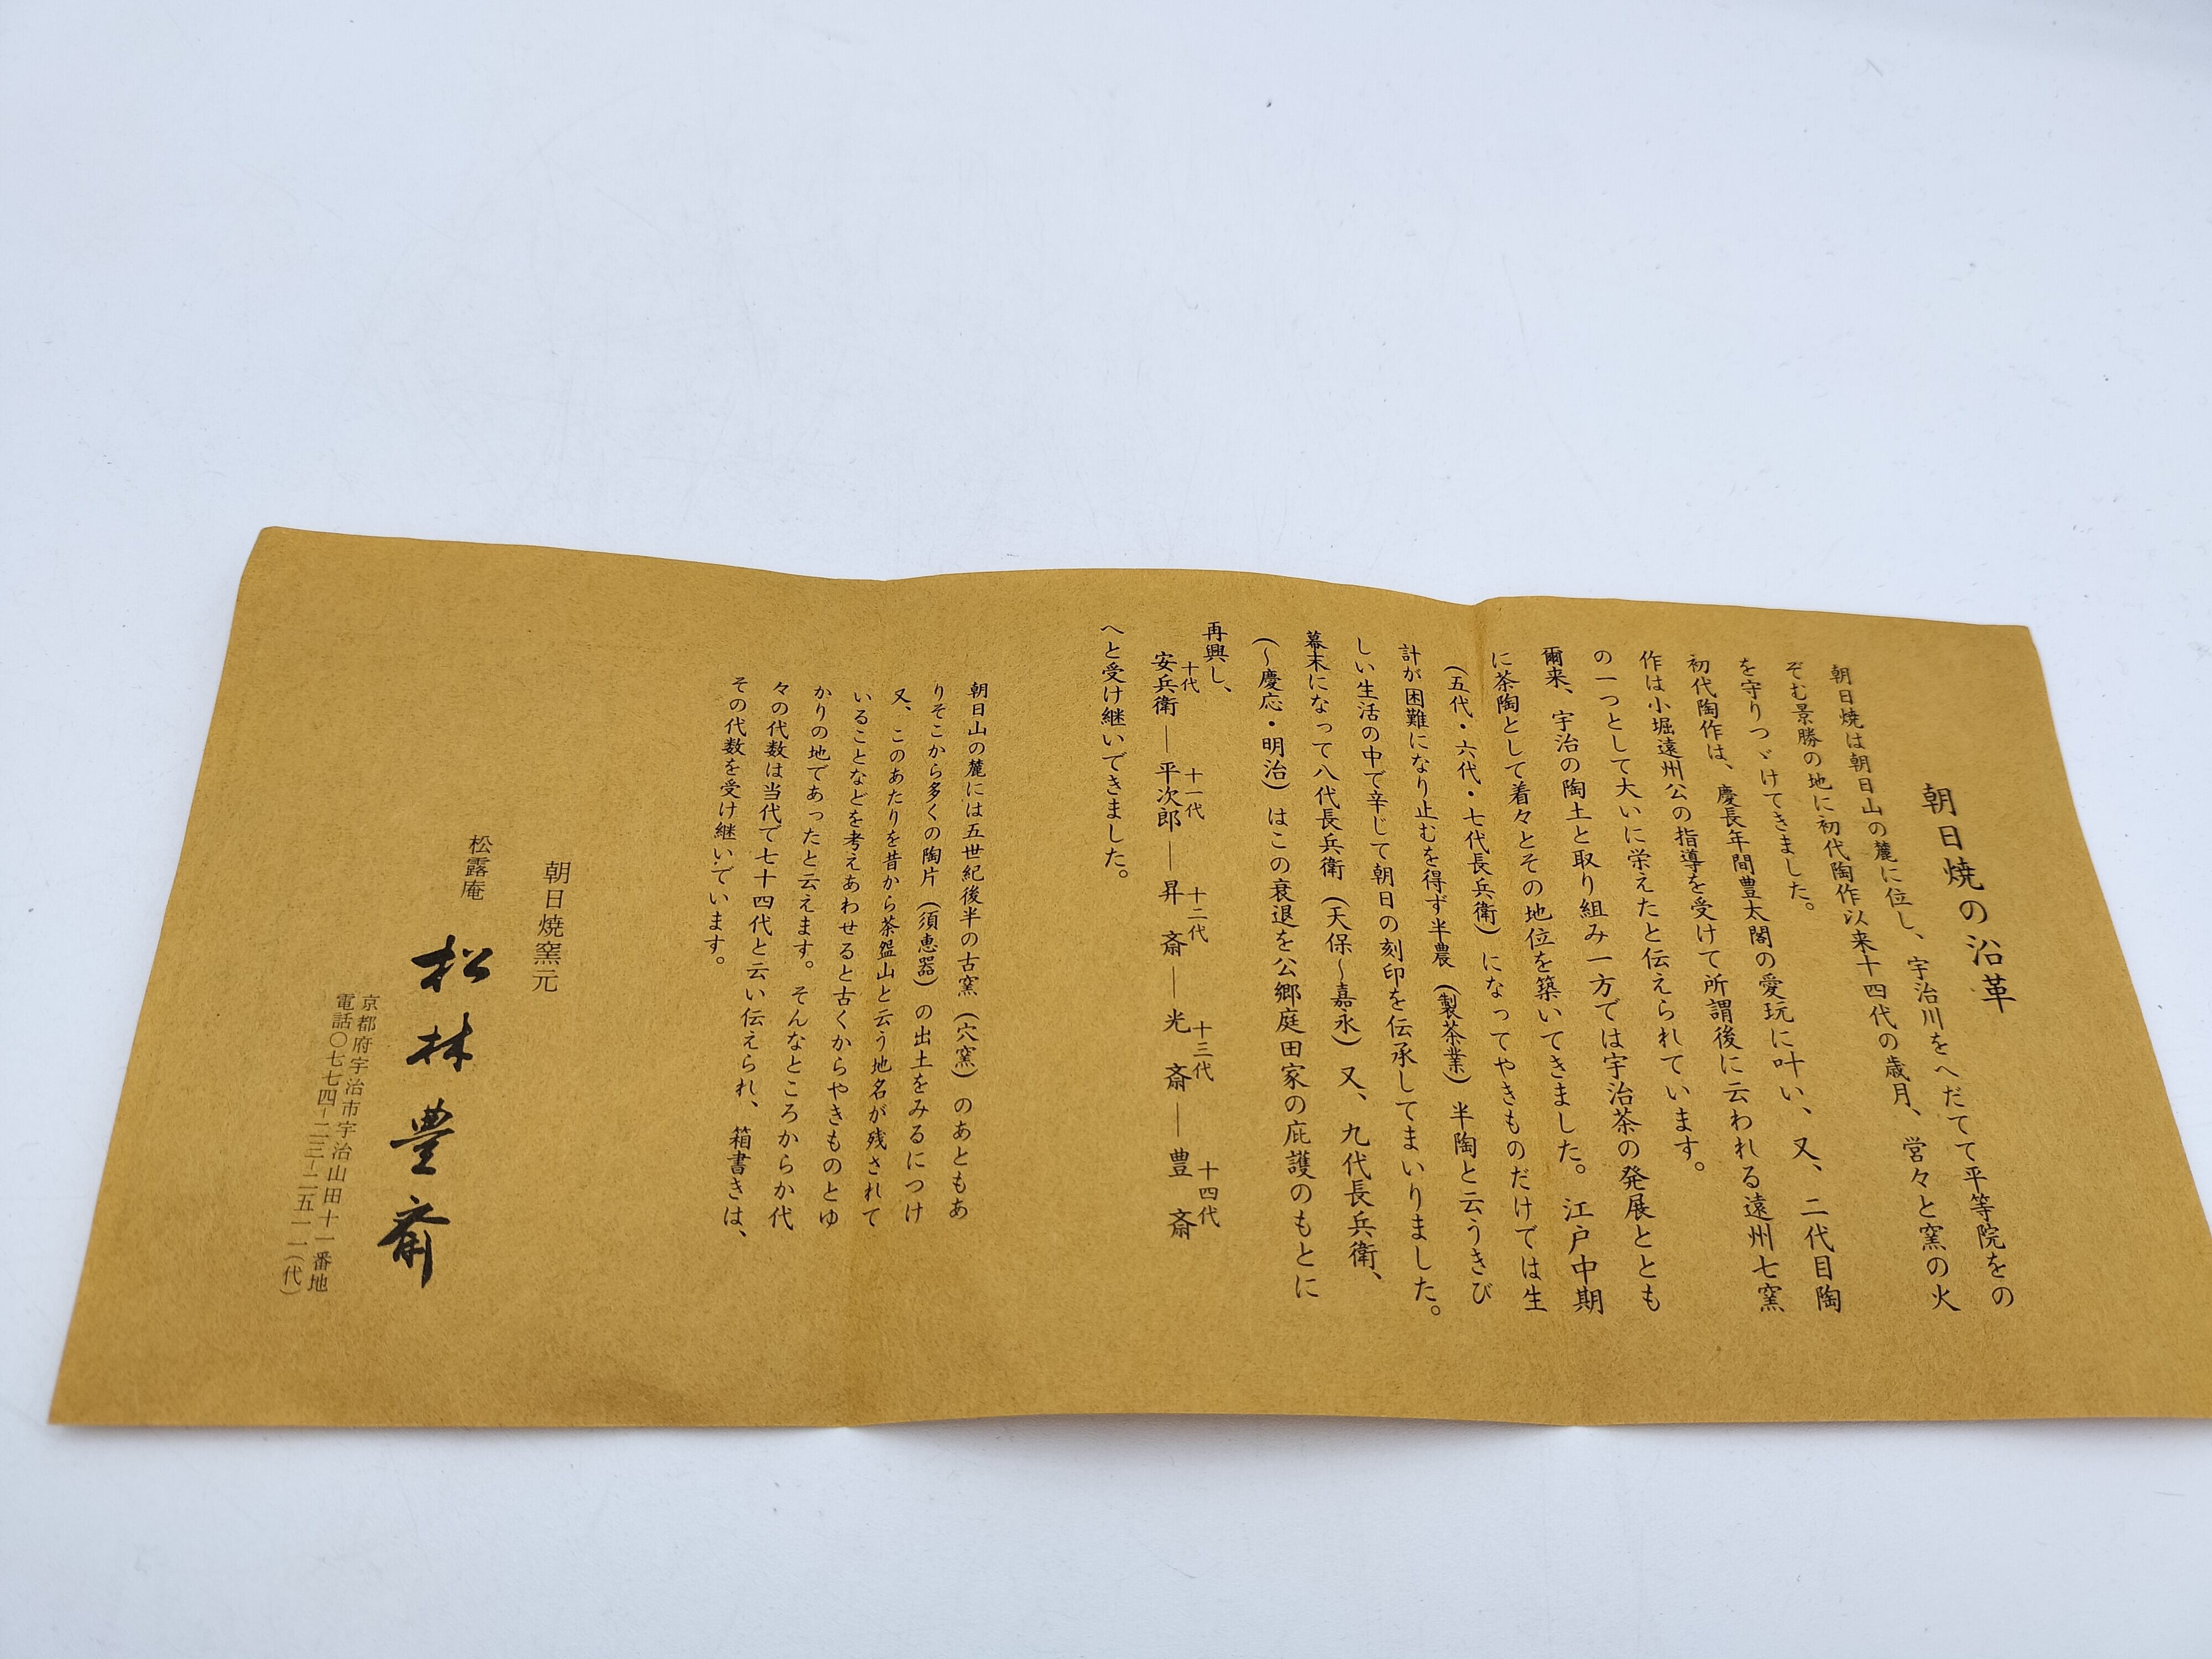 朝日焼の沿革
朝日焼は朝日山の麓に位し、宇治川をへだてて平等院をの
ぞむ景勝の地に初代陶作以来十四代の歳月、営々と窯の火
を守りつゞけてきました。
初代陶作は、慶長年間豊太閤の愛玩に叶い、又、二代目陶
作は小堀遠州公の指導を受けて所謂後に云われる遠州七窯
の一つとして大いに栄えたと伝えられています。
爾来、宇治の陶土と取り組み一方では宇治茶の発展ととも
に茶陶として着々とその地位を築いてきました。江戸中期
(五代・六代・七代長兵衛)になってやきものだけでは生
計が困難になり止むを得ず半農(製茶業)半陶と云うきび
しい生活の中で辛じて朝日の刻印を伝承してまいりました。
幕末になって八代長兵衛(天保〜嘉永)又、九代長兵衛、
(〜慶応・明治)はこの衰退を公郷庭田家の庇護のもとに
再興し、
十代 十一代 十二代 十三代 十四代
安兵衛―平次郎―昇斎―光斎―豊斎
へと受け継いできました。
朝日山の麓には五世紀後半の古窯(穴窯)のあともあ
りそこから多くの陶片(須恵器)の出土をみるにつけ
又、このあたりを昔から茶盌山と云う地名が残されて
いることなどを考えあわせると古くからやきものとゆ
かりの地であったと云えます。そんなところからか代
々の代数は当代で七十四代と云い伝えられ、箱書きは、
その代数を受け継いでいます。
朝日焼窯元
松露庵
松林豊斎
京都府宇治市宇治山田十一番地
電話〇七七四-二三-二五一一(代)